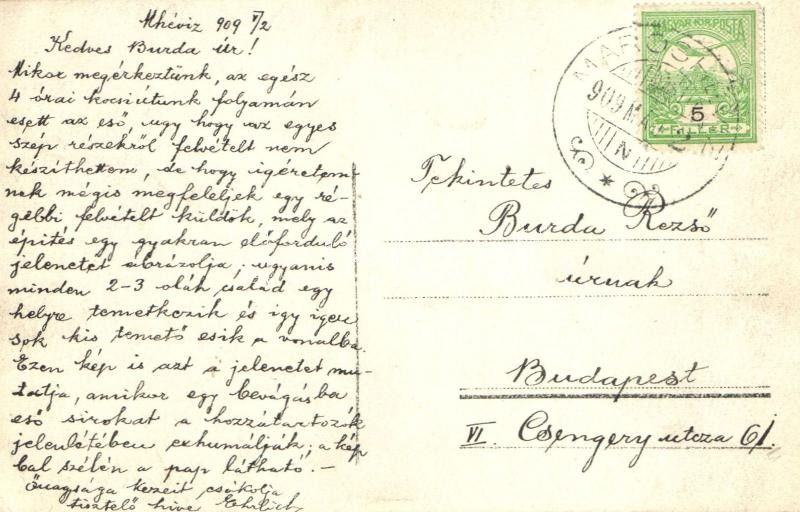 Mhéviz 909 V/2
Kedves Burda úr!
Mikor megérkeztünk, az egész
4 órai kocsiútunk folyamán
esett az eső, ugy hogy az egyes
szép részekről felvételt nem
készíthettem, de hogy igéretem-
nek mégis megfeleljek egy ré-
gebbi felvételt küldök, mely az
épités egy gyakran előforduló
jelenetét ábrázolja; ugyanis
minden 2-3 oláh család egy
helyre temetkezik és igy igen
sok kis temető esik a vonalba.
Ezen kép is azt a jelenetet mu-
tatja, amikor egy bevágásba
eső sirokat a hozzátartozók
jelenlétében exhumálják; a kép
bal szélén a pap látható. –
Őnagysága kezeit csókolja
tisztelő hive Ehrlich
MAGYAR KIR. POSTA
5
FILLÉR
909 MÁJ. 2
N
Tekintetes
Burda Rezső
úrnak
Budapest
VI. Csengery utcza 61.